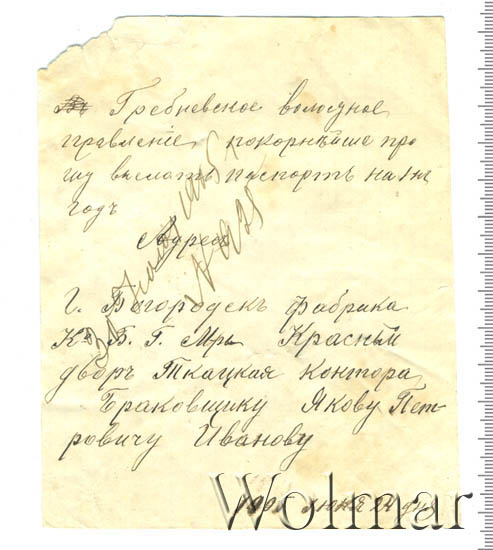 Гребневское волостное
правленіе, покорнѣйше про
шу выслать паспортъ на 1нъ
годъ
Адресъ
Г. Богородскъ фабрика
Кº Б. Г. Мры Красный
дворъ Ткацкая контора
Браковщику Якову Пет-
ровичу Иванову
іюня 24 дня
Wolmar